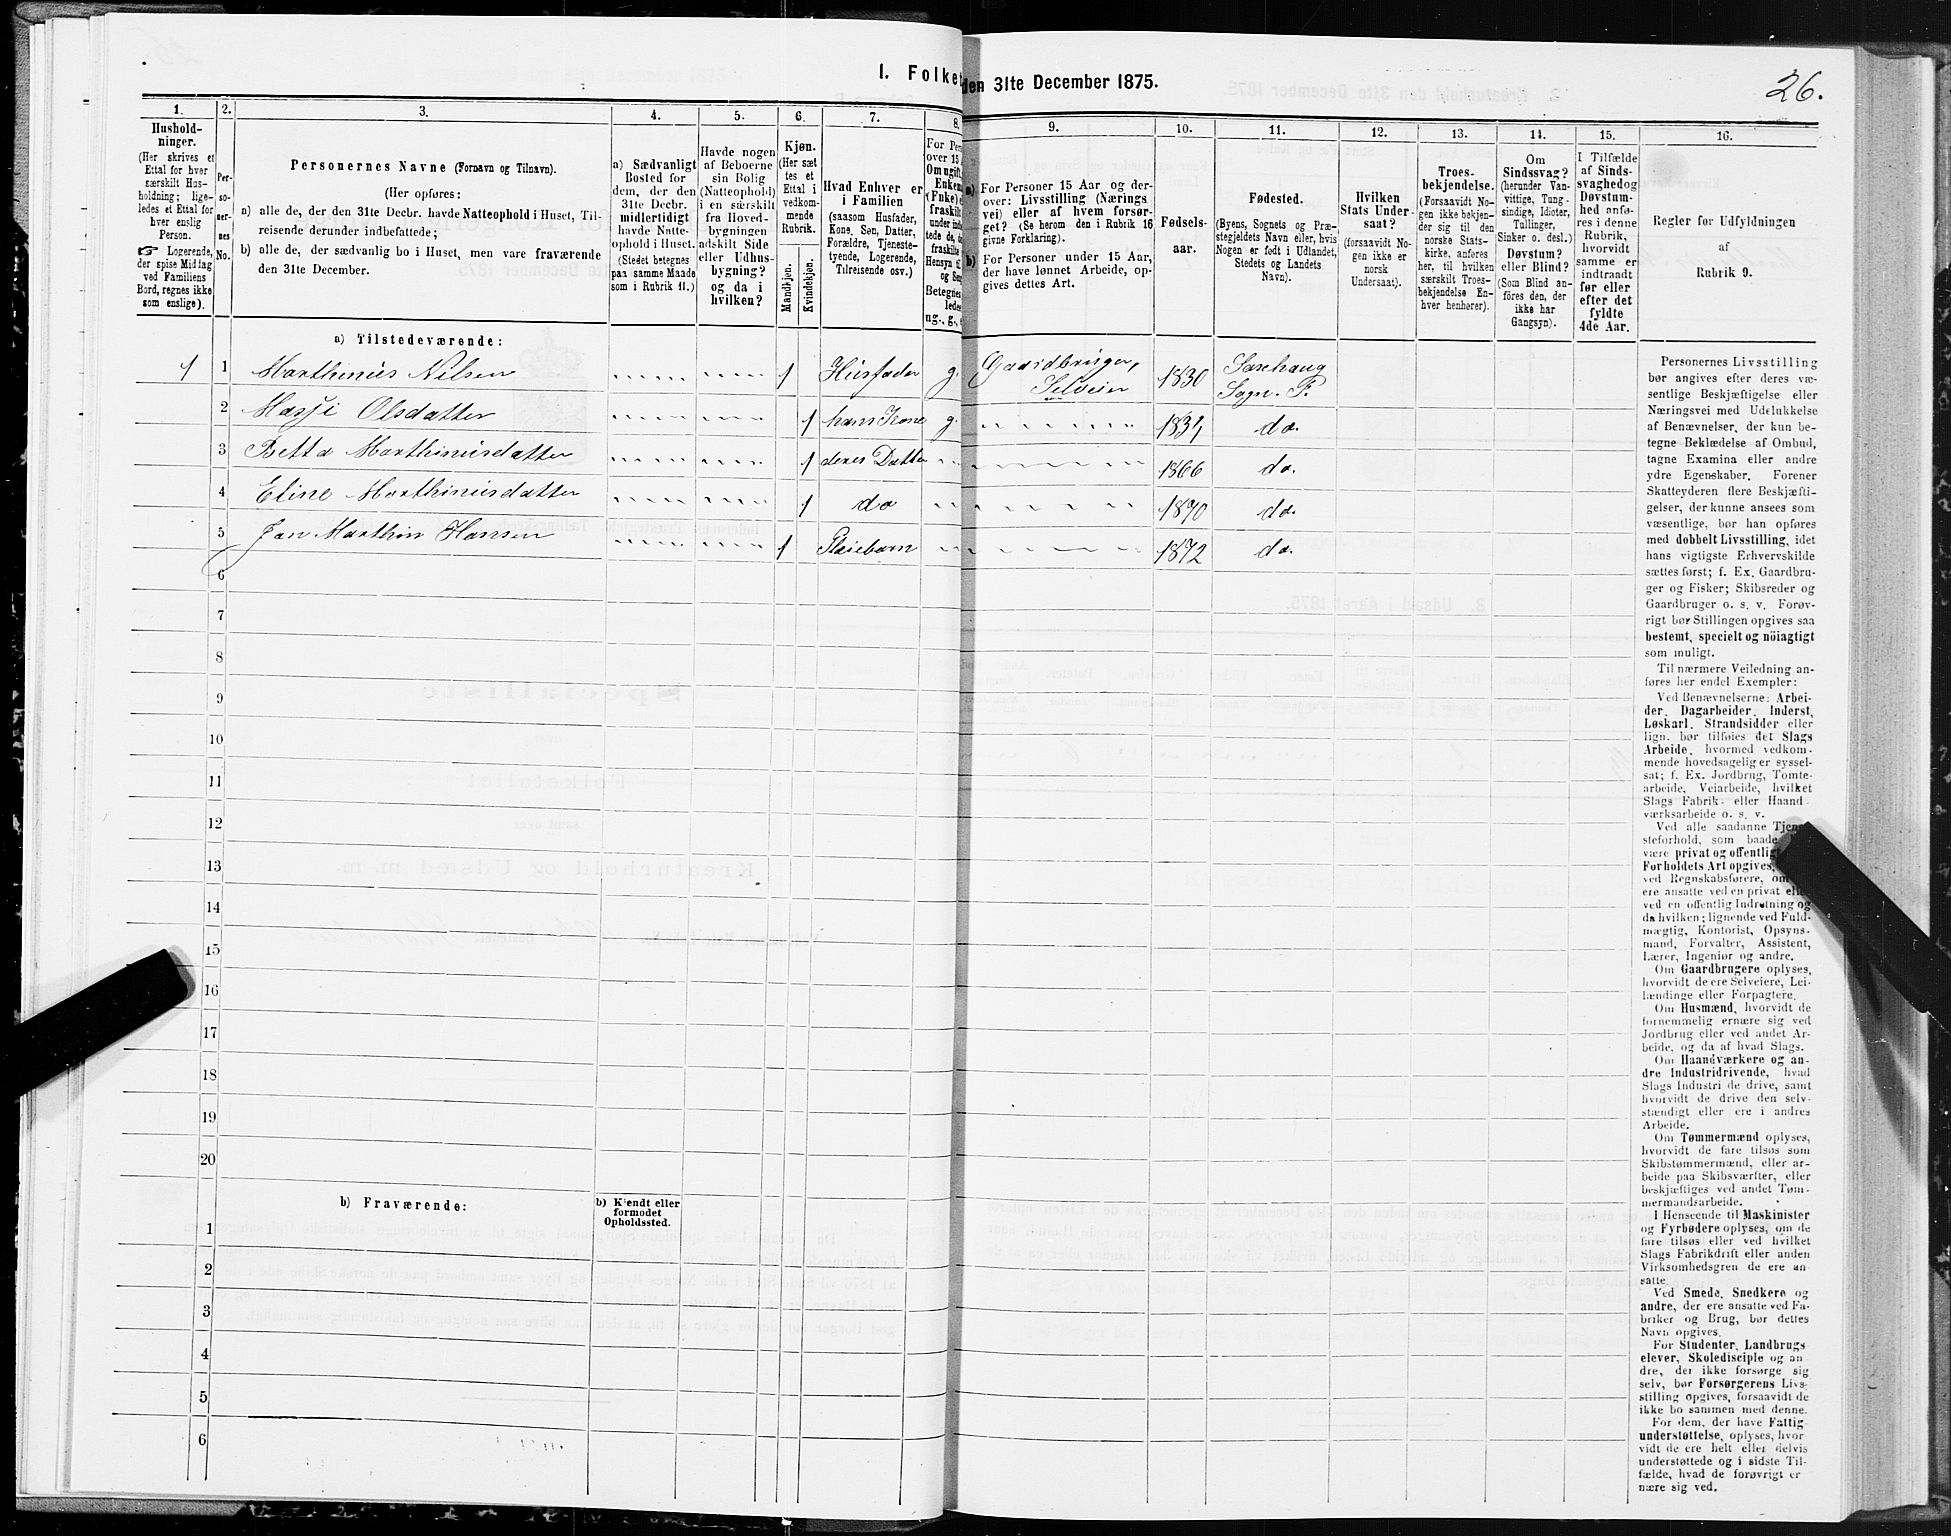 I. Folke
den 31te December 1875.
26.
1. 2. 3. 4. 5. 6. 7. 8. 9. 10. 11. 12. 13. 14. 15. 16.
Hushold-
ninger.
(Her skrives et
Ettal for hver
særskilt Hus-
holdning; lige-
ledes et Ettal for
hver enslig
Person.
☞ Logerende,
der spise Middag
ved Familiens
Bord, regnes ikke
som enslige).
Per-
so-
ner-
nes
No.
Personernes Navne (Fornavn og Tilnavn).
(Her opføres:
a) alle de, der den 31te Decbr. havde Natteophold i Huset, Til-
reisende derunder indbefattede;
b) alle de, der sædvanlig bo i Huset, men vare fraværende
den 31te December.
a) Sædvanligt
Bosted for
dem, der den
31te Decbr.
midlertidigt
havde Natte-
ophold i Huset.
(Stedet betegnes
paa samme Maade
som i Rubrik 11.)
Havde nogen
af Beboerne
sin Bolig
(Natteophold)
i en særskilt
fra Hoved-
bygningen
adskilt Side
eller Udhus-
bygning?
og da i
hvilken?
Kjøn.
(Her sæt
tes et
Ettal i
vedkom-
mende
Rubrik.
Mandkjøn.
Kvindekjøn.
Hvad Enhver er
i Familien
(saasom Husfader,
Kone, Søn, Datter,
Forældre, Tjeneste-
tyende, Logerende,
Tilreisende osv.)
For Per
over 15
Om ugift,
Enkem
(Fnke) e
fraskilt
under
tede de,
fraskilte
Hensyn ti
og Sen
Betegnes
ledes
ug., g., e
a) For Personer 15 Aar og der-
over: Livsstilling (Nærings
vei) eller af hvem forsør-
get? (Se herom den i Rubrik 16
givne Forklaring).
b) For Personer under 15 Aar,
der have lønnet Arbeide, op-
gives dettes Art.
Fødsels-
aar.
Fødested.
(Byens, Sognets og Præ-
stegjeldets Navn eller, hvis
Nogen er født i Udlandet,
Stedets og Landets
Navn).
Hvilken
Stats Under-
saat?
(forsaavidt No-
gen ikke er
norsk
Undersaat).
Troes-
bekjendelse.
(Forsaavidt No-
gen ikke bekjen-
der sig til den
norske Stats-
kirke, anføres
her, til hvilken
særskilt Troes-
bekjendelse En-
hver henhører).
Om
Sindssvag?
(herunder Van-
vittige, Tung-
sindige, Idioter,
Tullinger,
Sinker o. desl.)
Døvstum?
eller Blind?
(Som Blind an-
føres den, der
ikke har
Gangsyn).
I Tilfælde
af Sinds-
svaghedog
Døvstum-
hed anfø-
res i denne
Rubrik,
hvorvidt
samme er
indtraadt
før eller
efter det
fyldte
4de Aar.
Regler før Udfyldningen
af
Rubrik 9.
a) Tilstedeværende:
1 1 Marthinus Nilsen 1 Husfader g. Gaardbruger, Selveier 1830 Sørehaug Sogn. P.
2 Masji Olsdatter 1 hans Kone g. 1831 do.
3 Betta Marthinusdatter 1 deres Datter 1866 do.
4 Eline Marthinusdatter 1 do 1870 do.
5 Jan Marthin Hansen 1 Pleiebarn 1872 do.
6
7
8
9
10
11
12
13
14
15
16
17
18
19
20
b) Fraværende:
b) Kjendt eller
formodet
Opholdssted.
1
2
3
4
5
6
Personernes Livsstilling
bør angives efter deres væ-
sentlige Beskjæftigelse eller
Næringsvei med Udelukkelse
af Benævnelser, der kun be-
tegne Beklædelse af Ombud,
tagne Examina eller andre
ydre Egenskaber. Forener
Skatteyderen flere Beskjæfti-
gelser, der kunne ansees som
væsentlige, bør han opføres
med dobbelt Livsstilling, idet
hans vigtigste Erhvervskilde
sættes først; f. Ex. Gaardbru-
ger og Fisker; Skibsreder og
Gaardbruger o. s. v. Forøv-
rigt bør Stillingen opgives saa
bestemt, specielt og nöiagtigt
som muligt.
Til nærmere Veiledning an-
føres her endel Exempler:
Ved Benævnelserne: Arbei-
der, Dagarbeider, Inderst,
Løskarl, Strandsidder eller
lign. bør tilføies det Slags
Arbeide, hvormed vedkom-
mende hovedsagelig er syssel-
sat; f. Ex. Jordbrug, Tomte-
arbeide, Veiarbeide, hvilket
Slags Fabrik- eller Haand-
værksarbeide o. s. v.
Ved alle saadanne Tjen
steforhold, som baade
være privat og offentligt
Forholdets Art opgives,
ved Regnskabsførere, om
ere ansatte ved en privat elle
ved en offentlig Indretning og
da hvilken; lignende ved Fuld-
mægtig, Kontorist, Opsyns-
mand, Forvalter, Assistent,
Lærer, Ingeniør og andre.
Om Gaardbrugere oplyses,
hvorvidt de ere Selveiere, Lei-
lændinge eller Forpagtere.
Om Husmænd, hvorvidt de
fornemmelig ernære sig ved
Jordbrug eller ved andet Ar-
beide, og da af hvad Slags.
Om Haandværkere og an-
dre Industridrivende, hvad
Slags Industri de drive, samt
hvorvidt de drive den selv-
stændigt eller ere i andres
Arbeide.
Om Tømmermænd oplyses,
hvorvidt de fare tilsøs som
Skibstømmermænd, eller ar-
beide paa Skibsværfter, eller
beskjæftiges ved andet Tøm-
mermandsarbeide.
I Henseende til Maskinister
og Fyrbødere oplyses, om de
fare tilsøs eller ved hvilket
Slags Fabrikdrift eller anden
Virksomhedsgren de ere an-
satte.
Ved Smede, Snedkere og
andre, der ere ansatte ved Fa-
briker og Brug, bør dettes
Navn opgives.
For Studenter, Landbrugs-
elever, Skoledisciple og an
dre, der ikke forsørge sig
selv, bør Forsørgerens Livs-
stilling opgives, forsaavidt de
ikke bo sammen med denne.
For dem, der have Fattig-
understøttelse, oplyses, hvor-
vidt de ere helt eller delvis
understøttede og i sidste Til-
fælde, hvad de forøvrigt er
nære sig ved.